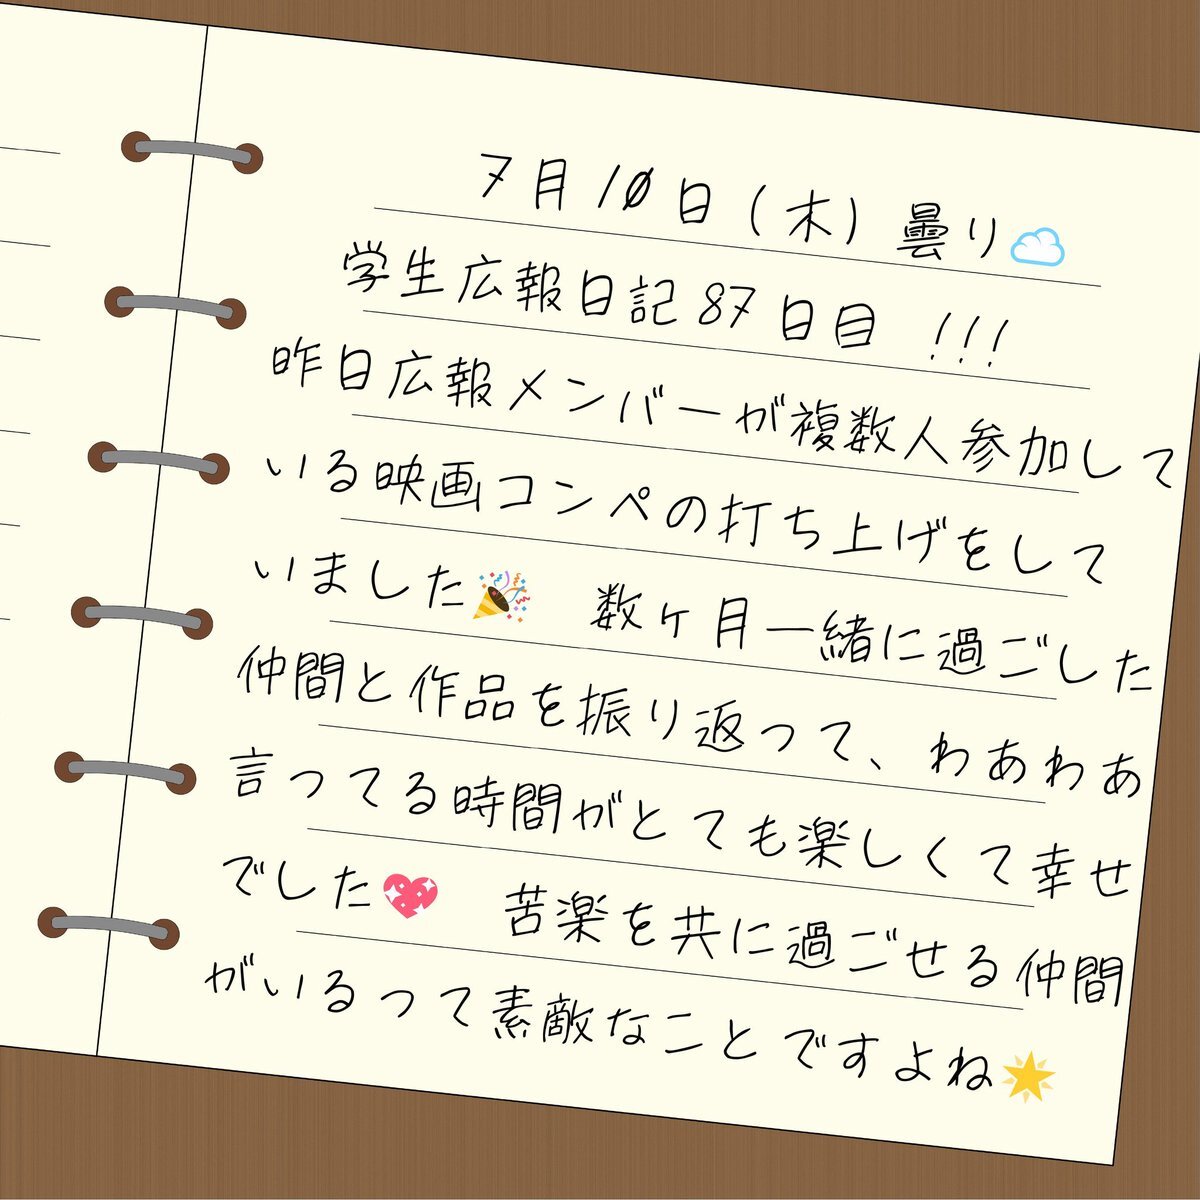 7月10日(木)曇り☁️
学生広報日記87日目 !!!
昨日広報メンバーが複数人参加して
いる映画コンペの打ち上げをして
いました🎉 数ヶ月一緒に過ごした
仲間と作品を振り返って、わあわあ
言ってる時間がとても楽しくて幸せ
でした💖 苦楽を共に過ごせる仲間
がいるって素敵なことですよね🌟